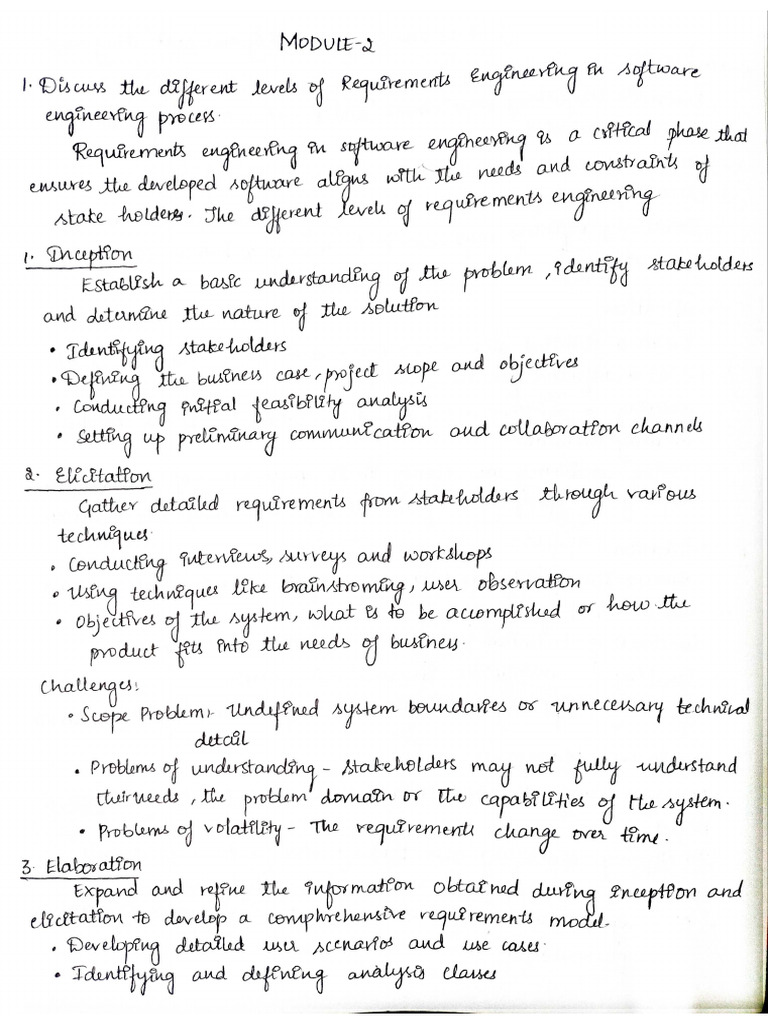 MODULE-2
1. Discuss the different levels of Requirements Engineering in software
engineering process.
Requirements engineering in software engineering is a critical phase that
ensures the developed software aligns with the needs and constraints of
stake holders. The different levels of requirements engineering
1. Inception
Establish a basic understanding of the problem, identify stakeholders
and determine the nature of the solution
• Identifying stakeholders
• Defining the business case, project scope and objectives
• Conducting initial feasibility analysis
• Setting up preliminary communication and collaboration channels
2. Elicitation
Gather detailed requirements from stakeholders through various
techniques.
• Conducting interviews, surveys and workshops
• Using techniques like brainstroming, user observation
• Objectives of the system, what is to be accomplished or how the
product fits into the needs of business.
Challenges:
• Scope Problem:- Undefined system boundaries or unnecessary technical
detail
• Problems of understanding - stakeholders may not fully understand
their needs, the problem domain or the capabilities of the system.
• Problems of volatility - The requirements change over time.
3. Elaboration
Expand and refine the information obtained during inception and
elicitation to develop a comphrehensive requirements model.
• Developing detailed user scenarios and use cases.
• Identifying and defining analysis classes